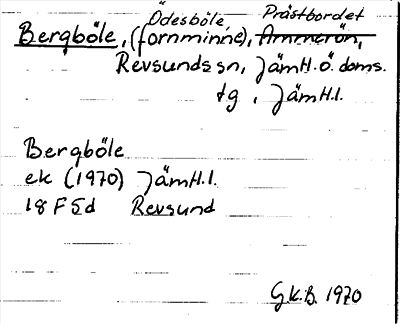 Ödesböle, Prästbordet
Bergböle, (fornminne), Ammerön,
Revsunds sn, JämH. ö. doms.
tg, JämH.l.
Bergböle
ek (1970) JämH.l.
18 F 5d Revsund
G.K.B. 1970